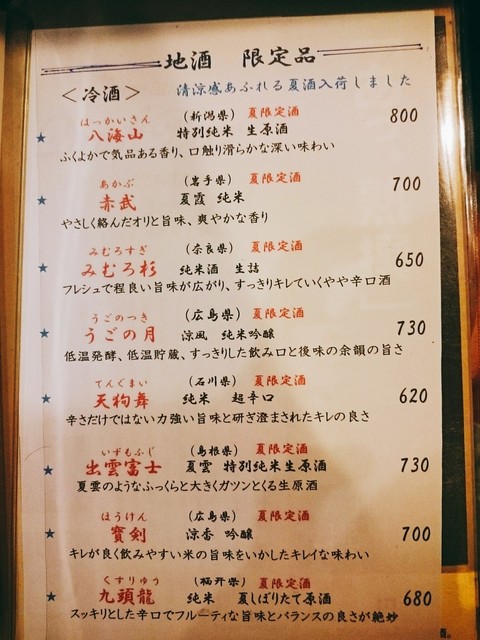 地酒 限定品
<冷酒> 清涼感あふれる夏酒入荷しました
はっかいさん (新潟県) 夏限定酒 800
★ 八海山 特別純米 生原酒
ふくよかで気品ある香り、口触り滑らかな深い味わい
あかぶ (岩手県) 夏限定酒 700
★ 赤武 夏霞 純米
やさしく絡んだオリと旨味、爽やかな香り
みむろすぎ (奈良県) 夏限定酒 650
★ みむろ杉 純米酒 生詰
フレシュで程良い旨味が広がり、すっきりキレていくやや辛口酒
うごのつき (広島県) 夏限定酒 730
★ うごの月 涼風 純米吟醸
低温発酵、低温貯蔵、すっきりした飲み口と後味の余韻の旨さ
てんぐまい (石川県) 夏限定酒
★ 天狗舞 純米 超辛口 620
辛さだけではない力強い旨味と研ぎ澄まされたキレの良さ
いずもふじ (島根県) 夏限定酒
★ 出雲富士 夏雲 特別純米生原酒 730
夏雲のようなふっくらと大きくガツンとくる生原酒
ほうけん (広島県) 夏限定酒
★ 寳剣 涼香 吟醸 700
キレが良く飲みやすい米の旨味をいかしたキレイな味わい
くずりゅう (福井県) 夏限定酒
★ 九頭龍 純米 夏しぼりたて原酒 680
スッキリとした辛口でフルーティな旨味とバランスの良さが絶妙